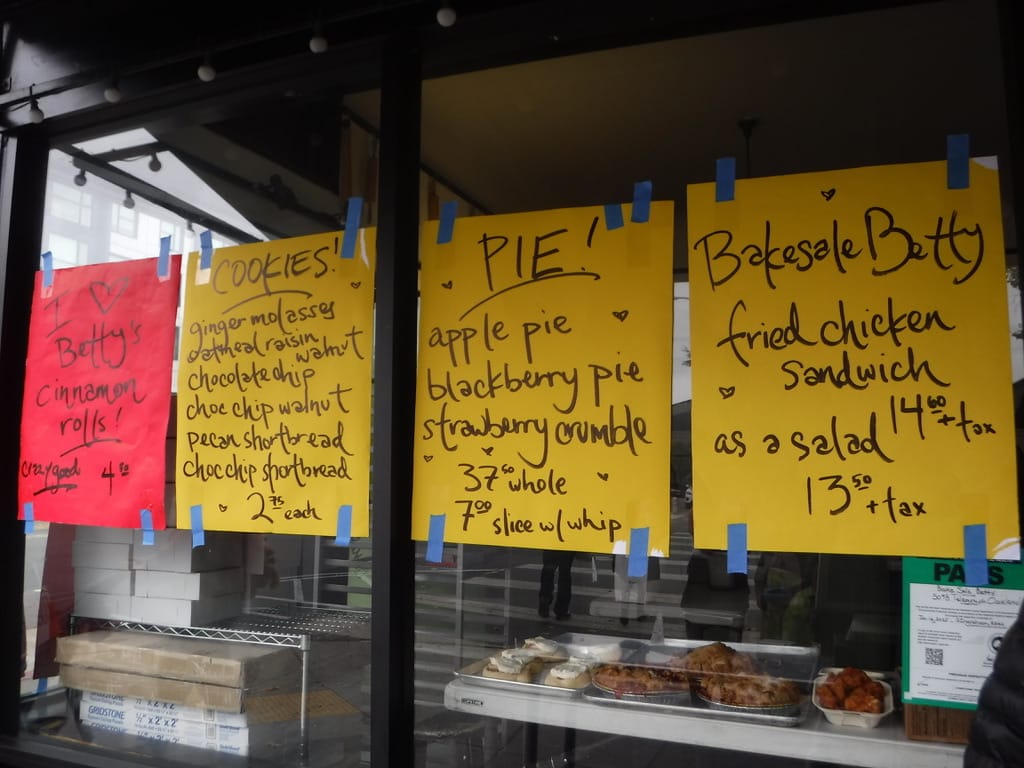 I ♡
Betty's
cinnamon
rolls!
crazy good 4 50
COOKIES!
ginger molasses
oatmeal raisin walnut
chocolate chip
choc chip walnut
pecan shortbread
choc chip shortbread
2 75 each
PIE!
apple pie
blackberry pie
strawberry crumble
37 50 whole
7 00 slice w/ whip
Bakesale Betty
fried chicken
sandwich
14 60 + tax
as a salad
13 50 + tax
PASS
Bake Sale Betty
5098 Telegraph
GRIDSTONE
½" x 2" x 2"
GRIDSTONE
½" x 2" x 2"